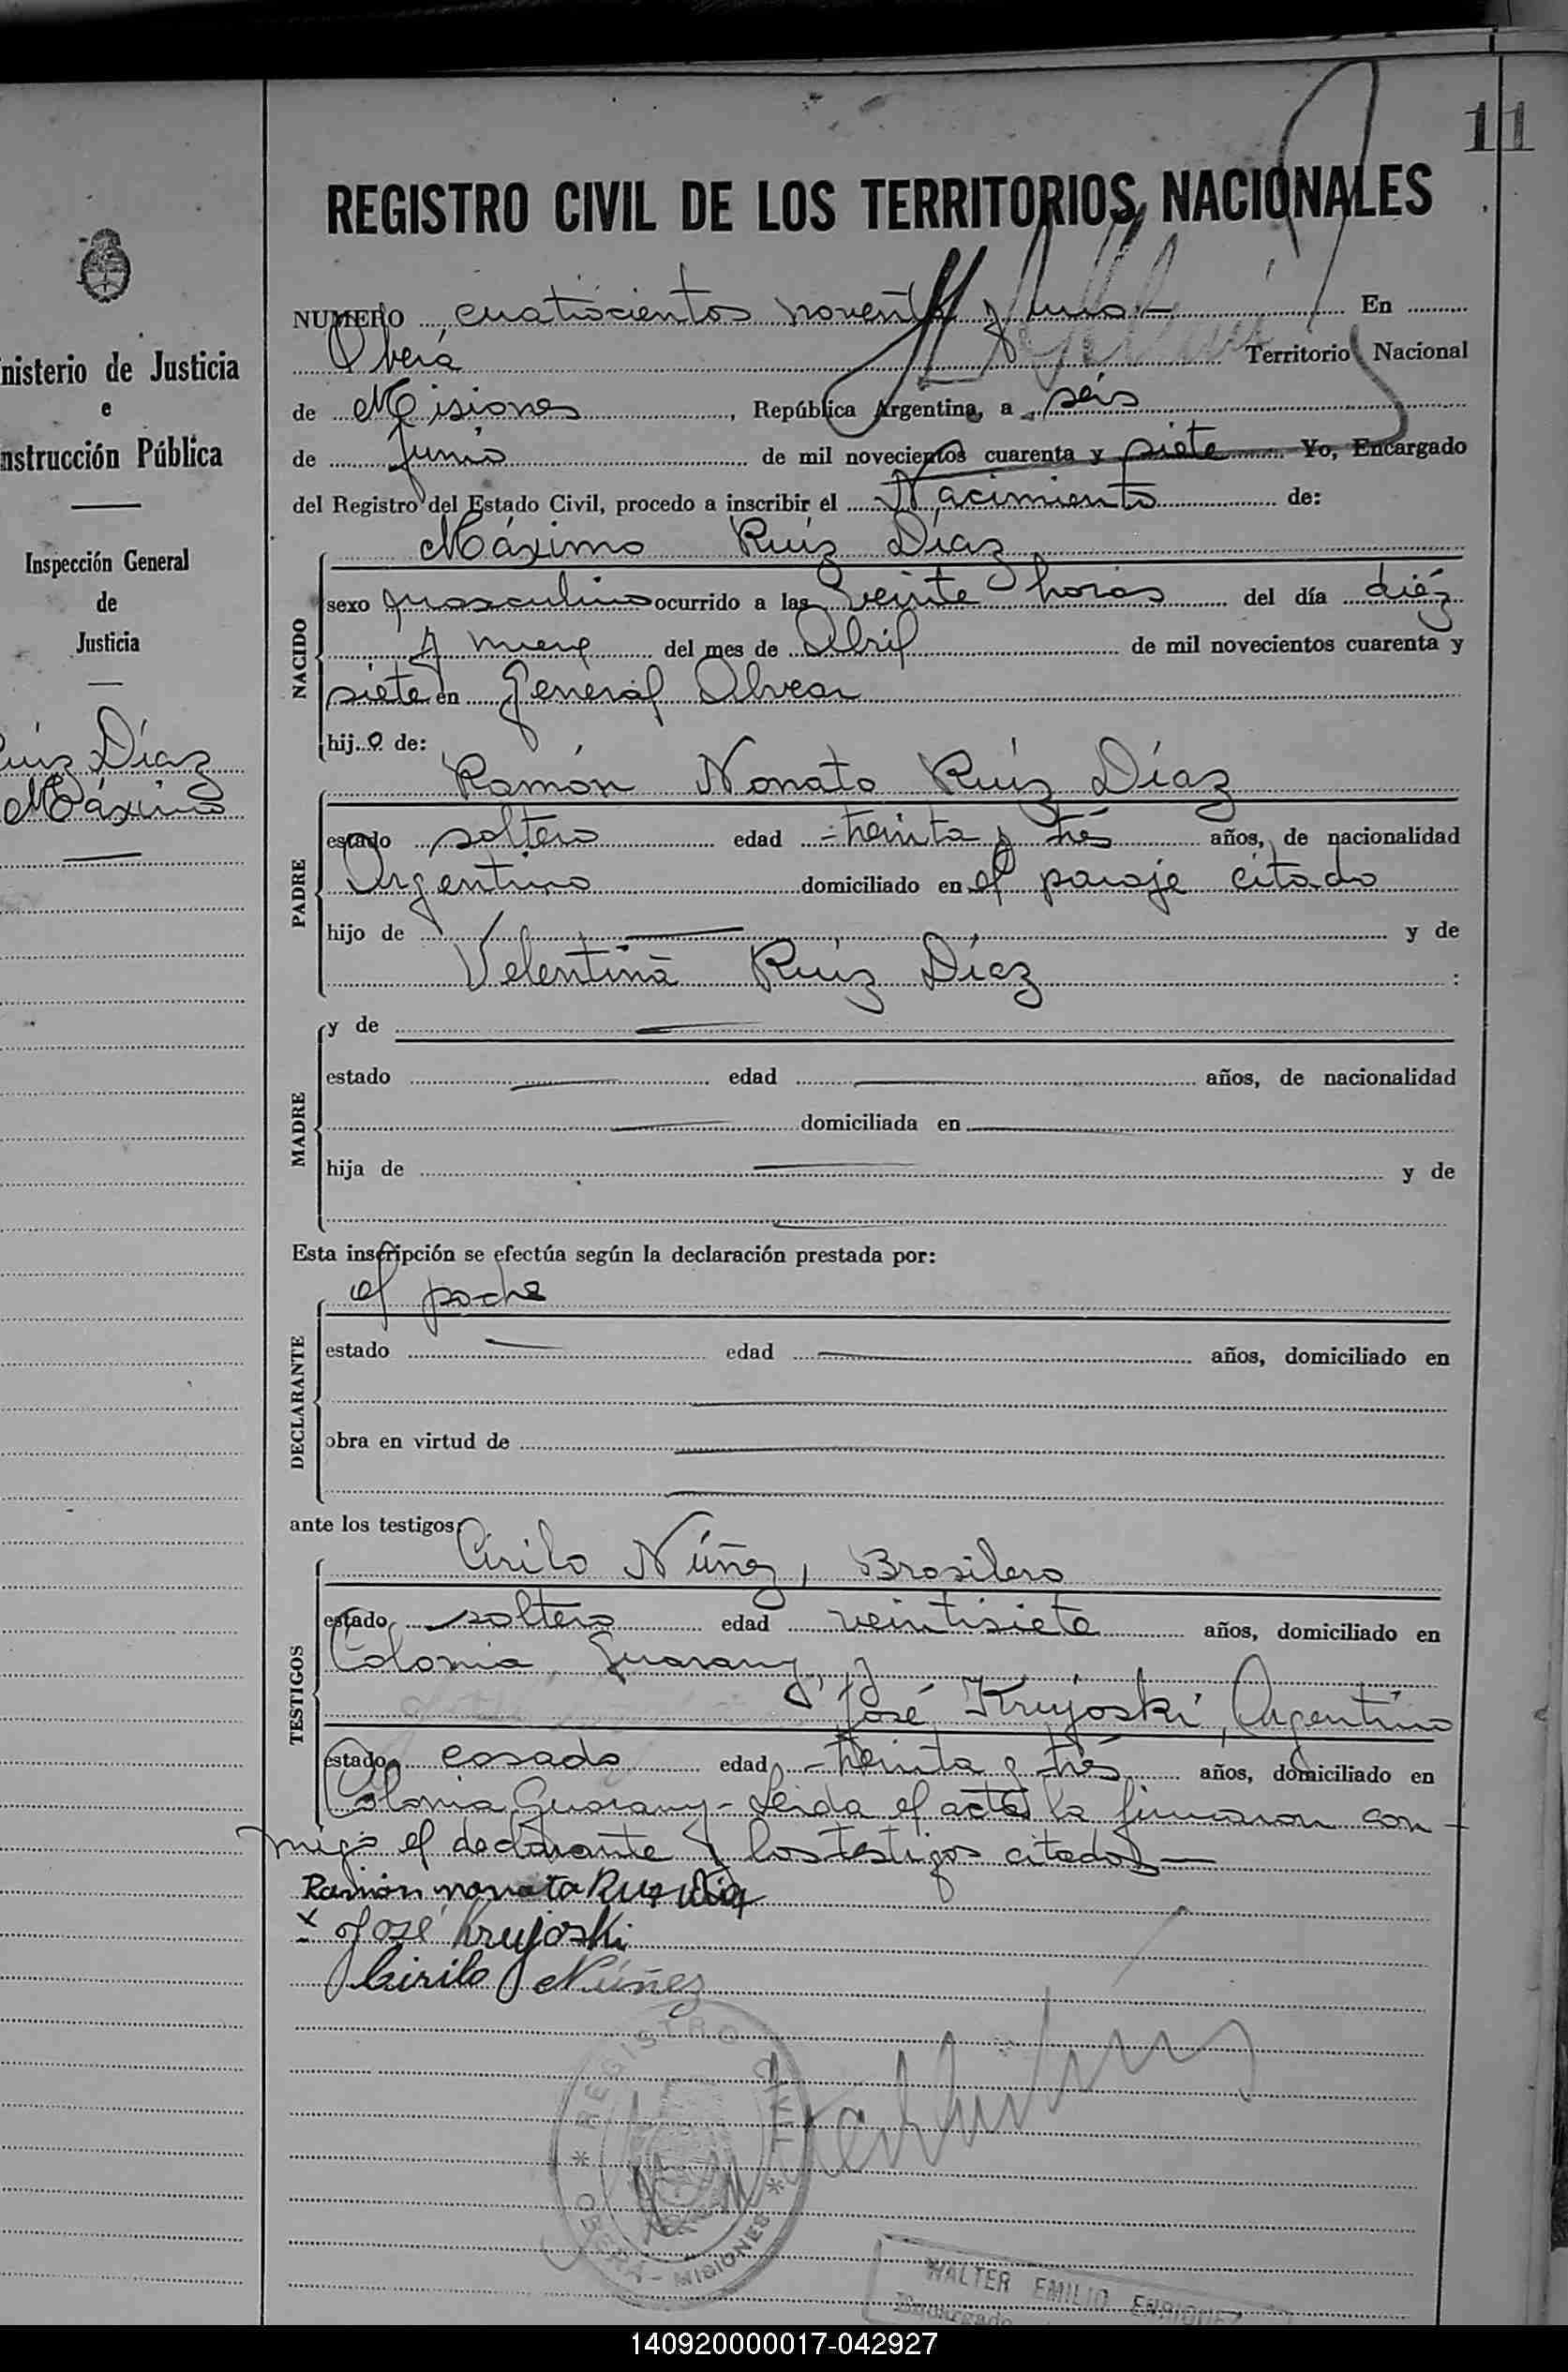 11
REGISTRO CIVIL DE LOS TERRITORIOS NACIONALES
NUMERO cuatrocientos noventa y uno - En
Oberá Territorio Nacional
de Misiones, República Argentina, a seis
de Junio de mil novecientos cuarenta y siete Yo, Encargado
del Registro del Estado Civil, procedo a inscribir el Nacimiento de:
Máximo Ruíz Díaz
NACIDO
sexo masculino ocurrido a las veinte horas del día diéz
y nueve del mes de Abril de mil novecientos cuarenta y
siete en General Alvear
hijo de:
PADRE
Ramón Nonato Ruíz Díaz
estado soltero edad treinta y trés años, de nacionalidad
Argentino domiciliado en el paraje citado
hijo de — y de
Velentina Ruíz Díaz :
MADRE
y de —
estado — edad — años, de nacionalidad
— domiciliada en —
hija de — y de
—
Esta inscripción se efectúa según la declaración prestada por:
DECLARANTE
el padre
estado — edad — años, domiciliado en
—
obra en virtud de —
—
ante los testigos:
TESTIGOS
Cirilo Núñez, Brasilero
estado soltero edad veintisiete años, domiciliado en
Colonia Guarany, y
José Krujoski, Argentino
estado casado edad treinta y trés años, domiciliado en
Colonia Guarany - Leida el acta la firmaron con-
migo el declarante y los testigos citados —
Ramón nonato Ruz Dia
x José Krujoski
Cirilo Núñez
REGISTRO CIVIL
OBERA - MISIONES
WALTER EMILIO ENRIQUEZ
Encargado
nisterio de Justicia
e
nstrucción Pública
Inspección General
de
Justicia
uíz Díaz
Máximo
140920000017-042927